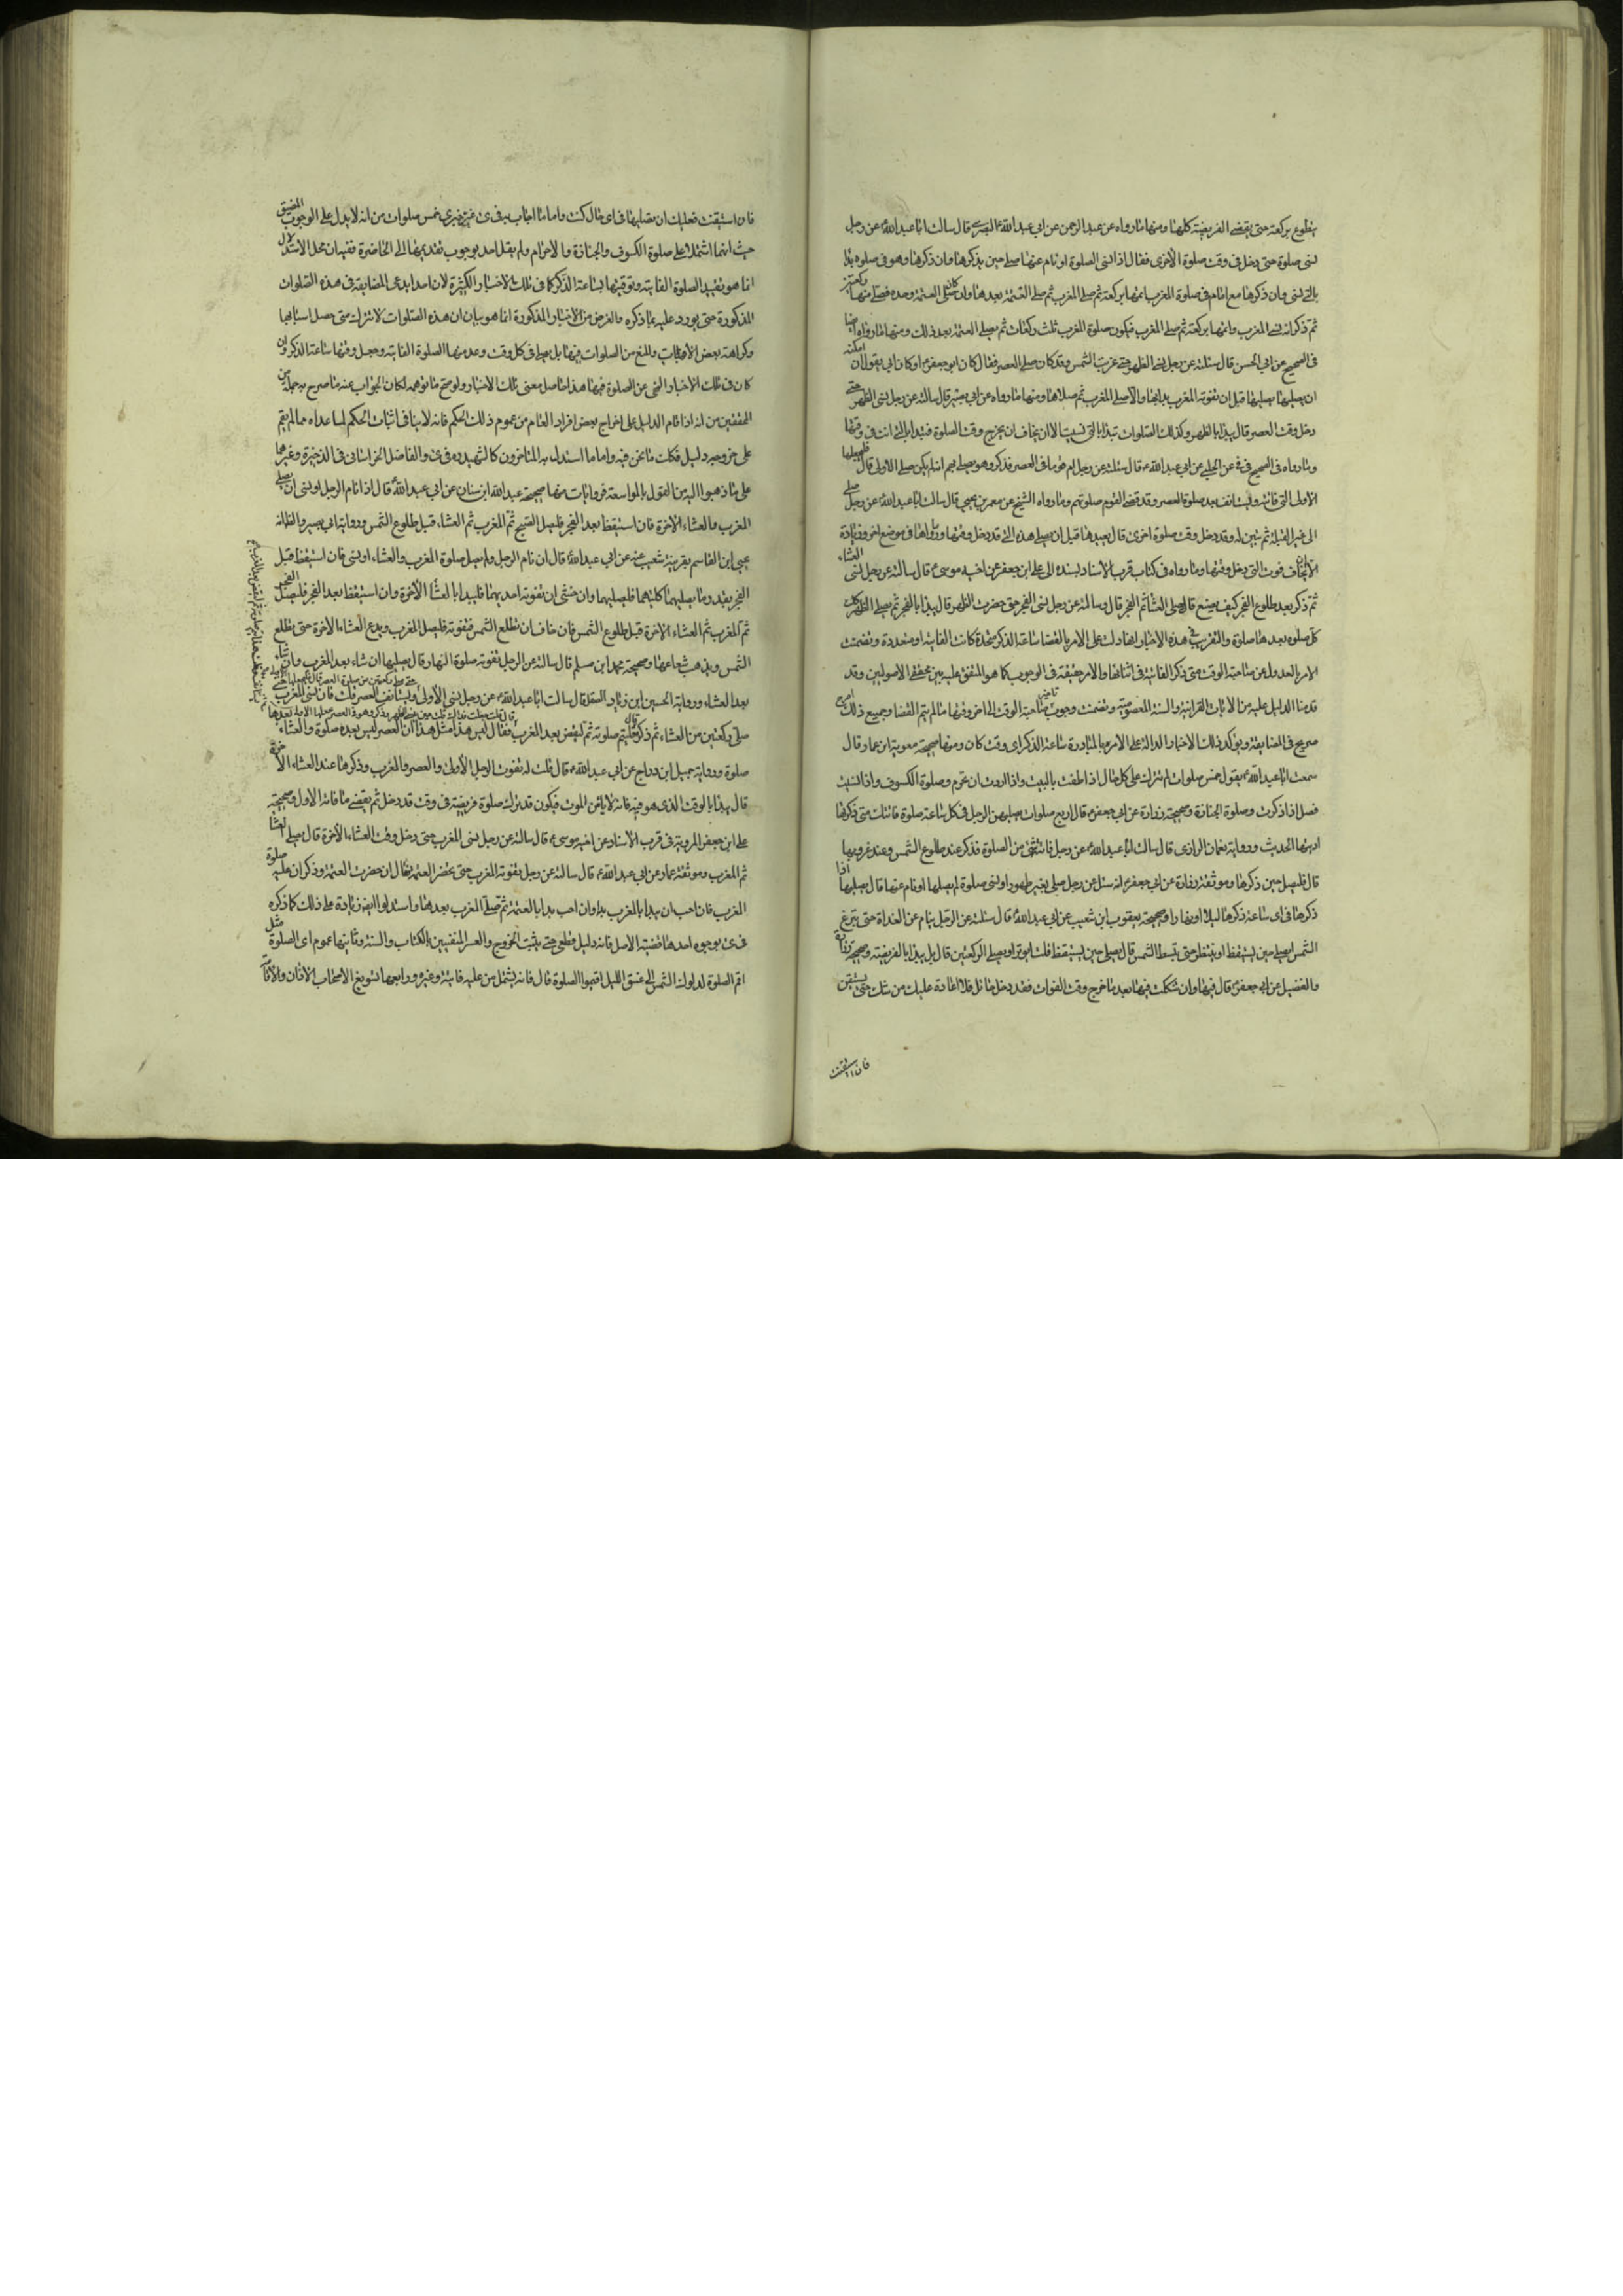 يتطوع بركعة حتى يقضي الفريضة كلها ومنها ما رواه عن عبد الرحمن عن ابي عبد الله البصري قال سالت ابا عبد الله عن رجل
نسى صلوة حتى دخل في وقت صلوة الاخرى فقال اذا نسى الصلوة او نام عنها صلى حين يذكرها وان ذكرها وهو في صلوة بدا
بالتي نسى وان ذكرها مع امام في صلوة المغرب اتمها بركعة ثم صلى المغرب ثم صلى العتمة بعدها وان كان صلى العتمة وحده فصلى منها ركعتين
ثم ذكر انه نسى المغرب واتمها بركعة ثم صلى المغرب فيكون صلوة المغرب ثلث ركعات ثم يصلى العتمة بعد ذلك ومنها ما رواه ايضا
في الصحيح عن ابي الحسن قال سئلته عن رجل نسى الظهر حتى غربت الشمس وقد كان صلى العصر فقال كان ابو جعفر او كان ابي يقول ان امكنه
ان يصليها يصليها قبل ان تفوته المغرب بدا بها والا صلى المغرب ثم صلاها ومنها ما رواه عن ابي بصير قال سالته عن رجل نسى الظهر حتى
دخل وقت العصر قال يبدا بالظهر وكذلك الصلوات تبدا بالتي نسيت الا ان يخاف ان يخرج وقت الصلوة فتبدا بالتي انت في وقتها
وما رواه في الصحيح عن الحلبي عن ابي عبد الله قال سئلت عن رجل ام قوما في العصر فذكر وهو يصلى بهم انه لم يكن صلى الاولى قال فليجعلها
الاولى التي فاتته وليستانف بعد صلوة العصر وقد قضى القوم صلوتهم وما رواه الشيخ عن معمر بن يحيى قال سالت ابا عبد الله عن رجل صلى
الى غير القبلة ثم تبين له وقد دخل وقت صلوة اخرى قال يعيدها قبل ان يصلى هذه التي قد دخل وقتها ورواها في موضع اخر وزيادة
الا ان يخاف فوت التي دخل وقتها وما رواه في كتاب قرب الاسناد بسنده الى على ابن جعفر عن اخيه موسى قال سالته عن رجل نسى العشاء
ثم ذكر بعد طلوع الفجر كيف يصنع قال يصلى العشاء ثم الفجر قال وسالته عن رجل نسى الفجر حتى حضرت الظهر قال يبدا بالفجر ثم يصلى الظهر كان
كل صلوة بعدها صلوة والتقريب في هذه الاخبار انها دلت على الامر بالقضا ساعة الذكر متحدة كانت الفايتة او متعددة وتضمنت
الامر بالعدول عن صاحبة الوقت متى ذكر الفايتة في اثنائها والامر حقيقة في الوجوب كما هو المتفق عليه بين محققي الاصوليين وقد
قدمنا الدليل عليه من الايات القرانية والسنة المعصومية وتضمنت وجوب تاخير صاحبة الوقت الى اخر وقتها ما لم يتم القضا وجميع ذلك
صريح في المضايقة ويؤكد ذلك الاخبار الدالة على الامر بالمبادرة ساعة الذكر اى وقت كان ومنها صحيحة معوية ابن عمار قال
سمعت ابا عبد الله يقول خمس صلوات لم تترك على كل حال اذا طفت بالبيت واذا اردت ان تحرم وصلوة الكسوف واذا نسيت
فصل اذا ذكرت وصلوة الجنازة وصحيحة زرارة عن ابي جعفر قال اربع صلوات يصليهن الرجل في كل ساعة صلوة فاتتك متى ذكرتها
اديتها الحديث ورواية نعمان الرازى قال سالت ابا عبد الله عن رجل فاته شى من الصلوة فذكر عند طلوع الشمس وعند غروبها
قال فليصل حين ذكرها وموثقة زرارة عن ابي جعفر انه سئل عن رجل صلى بغير طهور او نسى صلوة لم يصلها او نام عنها قال يصليها اذا
ذكرها في اى ساعة ذكرها ليلا او نهارا وصحيحة يعقوب ابن شعيب عن ابي عبد الله قال سئلته عن الرجل ينام عن الغداة حتى تبزغ
الشمس ايصلى حين يستيقظ او ينتظر حتى تنبسط الشمس قال يصلى حين يستيقظ قلت ايوتر او يصلى الركعتين قال بل يبدا بالفريضة وصحيحة زرارة
والفضيل عن ابي جعفر قال فيها وان شككت فيها بعد ما خرج وقت الفوات فقد دخل حائل فلا اعادة عليك من شك حتى تستيقن
فان استيقنت
فان استيقنت فعليك ان تصليها في اى حال كنت واما ما اجاب به في غير خبرى خمس صلوات من انه لا يدل على الوجوب المضيق
حيث انهما اشتملا على صلوة الكسوف والجنازة والاحرام ولم يقل احد بوجوب تقديمها الى الحاضرة ففيه ان محل الاستدلال
انما هو تقييد الصلوة الفايتة وتوقيتها بساعة الذكر كما في تلك الاخبار الكثيرة لان احدا يدعى المضايقة في هذه الصلوات
المذكورة حتى يورد عليه بما ذكره والغرض من الاخبار المذكورة انما هو بيان ان هذه الصلوات لا تترك متى حصل اسبابها
وكراهة بعض الاوقات والمنع من الصلوات فيها بل يصلى في كل وقت وعد منها الصلوة الفايتة وجعل وقتها ساعة الذكر وان
كان في تلك الاخبار النهى عن الصلوة فيها هذا حاصل معنى تلك الاخبار ولو صح ما توهمه لكان الجواب عنه ما صرح به جملة من
المحققين من انه اذا قام الدليل على اخراج بعض افراد العام من عموم ذلك الحكم فانه لا ينافى اثبات الحكم لما عداه مما لم يقم
على خروجه دليل فكانت ما نحن فيه واما ما استدل به المتاخرون كالشهيد ره في والفاضل الخراسانى في الذخيرة وغيرهما
على ما ذهبوا اليه من القول بالمواسعة فروايات منها صحيحة عبد الله ابن سنان عن ابي عبد الله قال اذا نام الرجل او نسى ان يصلى
المغرب والعشاء الاخرة فان استيقظ بعد الفجر فليصل الصبح ثم المغرب ثم العشاء قبل طلوع الشمس ورواية ابي بصير والظ انه
يحيى ابن القاسم بقرينة شعيب عنه عن ابي عبد الله قال ان نام الرجل ولم يصل صلوة المغرب والعشاء او نسى فان استيقظ قبل
الفجر بقدر ما يصليهما كلتيهما فليصليهما وان خشى ان تفوته احديهما فليبدا بالعشا الاخرة وان استيقظ بعد الفجر فليصل الفجر
ثم المغرب ثم العشاء الاخرة قبل طلوع الشمس فان خاف ان تطلع الشمس فتفوته فليصل المغرب ويدع العشاء الاخرة حتى تطلع
الشمس ويذهب شعاعها وصحيحة محمد ابن مسلم قال سالته عن الرجل تفوته صلوة النهار قال يصليها ان شاء بعد المغرب وان شاء
بعد العشاء ورواية الحسين ابن زياد الصيقل قال سالت ابا عبد الله عن رجل نسى الاولى حتى صلى ركعتين من صلوة العصر قال فليجعلها الاولى وليستانف العصر قلت فان نسى المغرب حتى
صلى ركعتين من العشاء ثم ذكر قال فليتم صلوته ثم ليقض بعد المغرب فقال ليس هذا مثل هذا ان العصر ليس بعده صلوة والعشاء بعدها
صلوة ورواية جميل ابن دراج عن ابي عبد الله قال قلت له تفوت الرجل الاولى والعصر والمغرب وذكرها عند العشاء الاخرة
قال يبدا بالوقت الذي هو فيه فانه لا يامن الموت فيكون قد ترك صلوة فريضة في وقت قد دخل ثم يقضي ما فاته الاول وصحيحة
على ابن جعفر المروية في قرب الاسناد عن اخيه موسى قال سالته عن رجل نسى المغرب حتى دخل وقت العشاء الاخرة قال يصلى العشا
ثم المغرب وموثقة عمار عن ابي عبد الله قال سالته عن رجل تفوته المغرب حتى تحضر العتمة فقال ان حضرت العتمة وذكر ان عليه صلوة
المغرب فان احب ان يبدا بالمغرب بدا وان احب بدا بالعتمة ثم صلى المغرب بعدها واستدلوا ايض زيادة على ذلك كما ذكره
في بوجوه احدها قضية الاصل فانه دليل قطعي حتى يثبت الخروج والعسر المنفيين بالكتاب والسنة وثانيها عموم اى الصلوة مثل
اقم الصلوة لدلوك الشمس الى غسق الليل اقيموا الصلوة قال فانه يشمل من عليه فايتة وغيره ورابعها تسويغ الاصحاب الاذان والاقامة